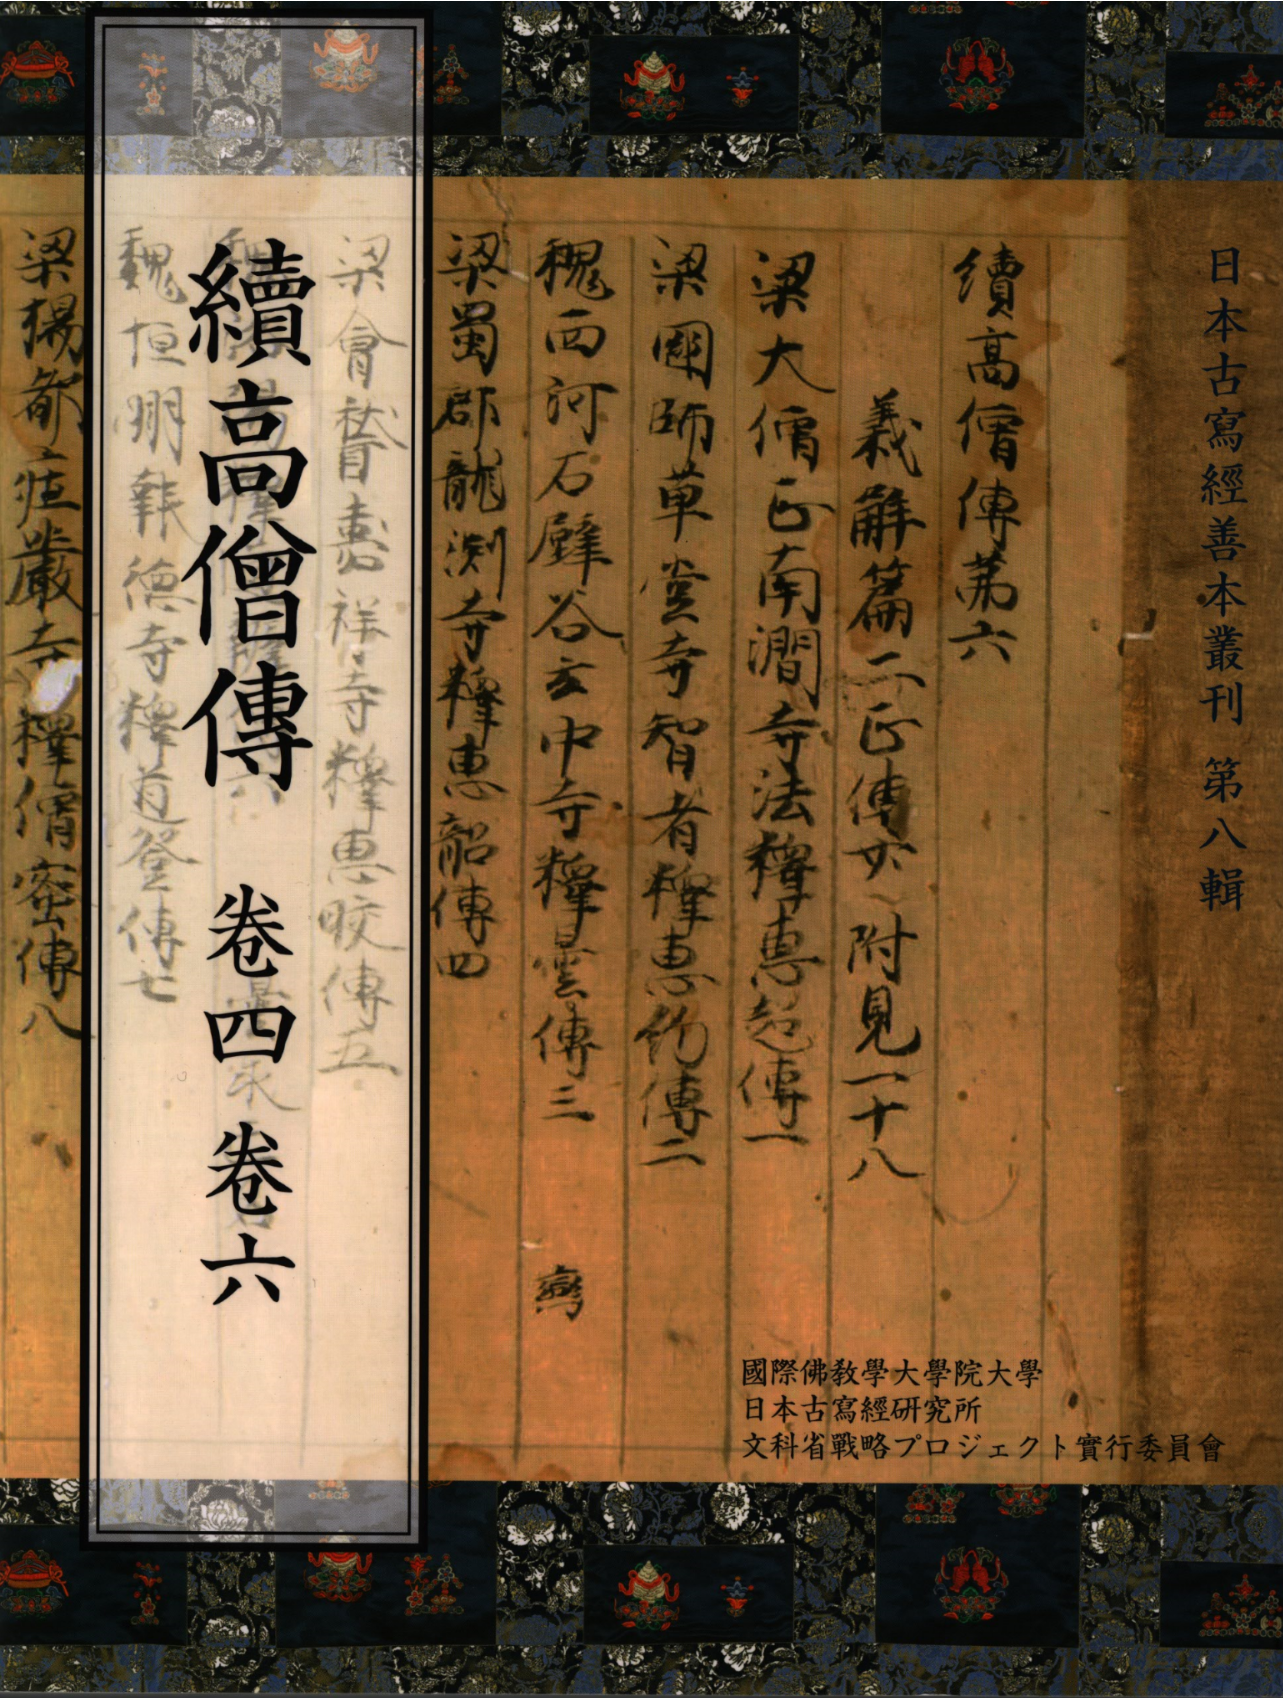 日本古寫經善本叢刊 第八輯
續高僧傳苐六
義解篇二正傳廿一附見一十八
梁大僧正南澗寺法釋惠超傳一
梁國師草堂寺智者釋惠約傳二
魏西河石壁谷玄中寺釋曇傳三
鸞
梁蜀郡龍渕寺釋惠韶傳四
梁會嵇嘉祥寺釋惠皎傳五
魏恒明報德寺釋道登傳七
梁揚都庄嚴寺釋僧密傳八
續高僧傳 卷四 卷六
國際佛教學大學院大學
日本古寫經研究所
文科省戰略プロジェクト實行委員會